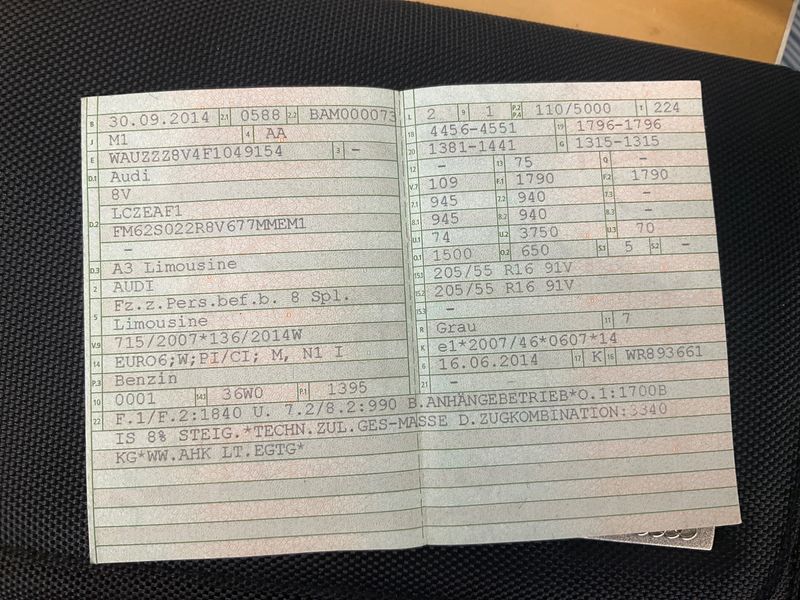 B 30.09.2014 2.1 0588 2.2 BAM000073
J M1 4 AA
E WAUZZZ8V4F1049154 3 -
D.1 Audi
8V
D.2 LCZEAF1
FM62S022R8V677MMEM1
-
D.3 A3 Limousine
2 AUDI
5 Fz.z.Pers.bef.b. 8 Spl.
Limousine
V.9 715/2007*136/2014W
14 EURO6;W;PI/CI; M, N1 I
P.3 Benzin
10 0001 14.1 36W0 P.1 1395
L 2 9 1 P.2 P.4 110/5000 T 224
18 4456-4551 19 1796-1796
20 1381-1441 G 1315-1315
12 - 13 75 Q -
V.7 109 F.1 1790 F.2 1790
7.1 945 7.2 940 7.3 -
8.1 945 8.2 940 8.3 -
U.1 74 U.2 3750 U.3 70
O.1 1500 O.2 650 S.1 5 S.2 -
15.1 205/55 R16 91V
15.2 205/55 R16 91V
15.3 -
R Grau 11 7
K e1*2007/46*0607*14
6 16.06.2014 17 K 16 WR893661
21 -
22 F.1/F.2:1840 U. 7.2/8.2:990 B.ANHÄNGEBETRIEB*O.1:1700B
IS 8% STEIG.*TECHN.ZUL.GES-MASSE D.ZUGKOMBINATION:3340
KG*WW.AHK LT.EGTG*